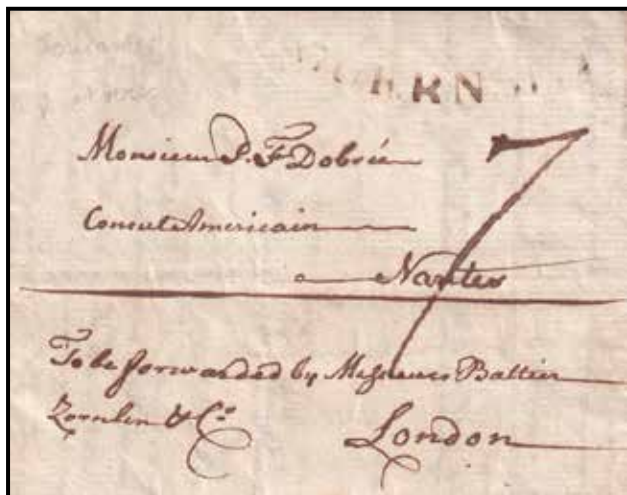 Monsieur P. F Dobrée
Consul Americain
Nantes
7
To be forwarded by Messieurs Battier
Zornlin & Co. London